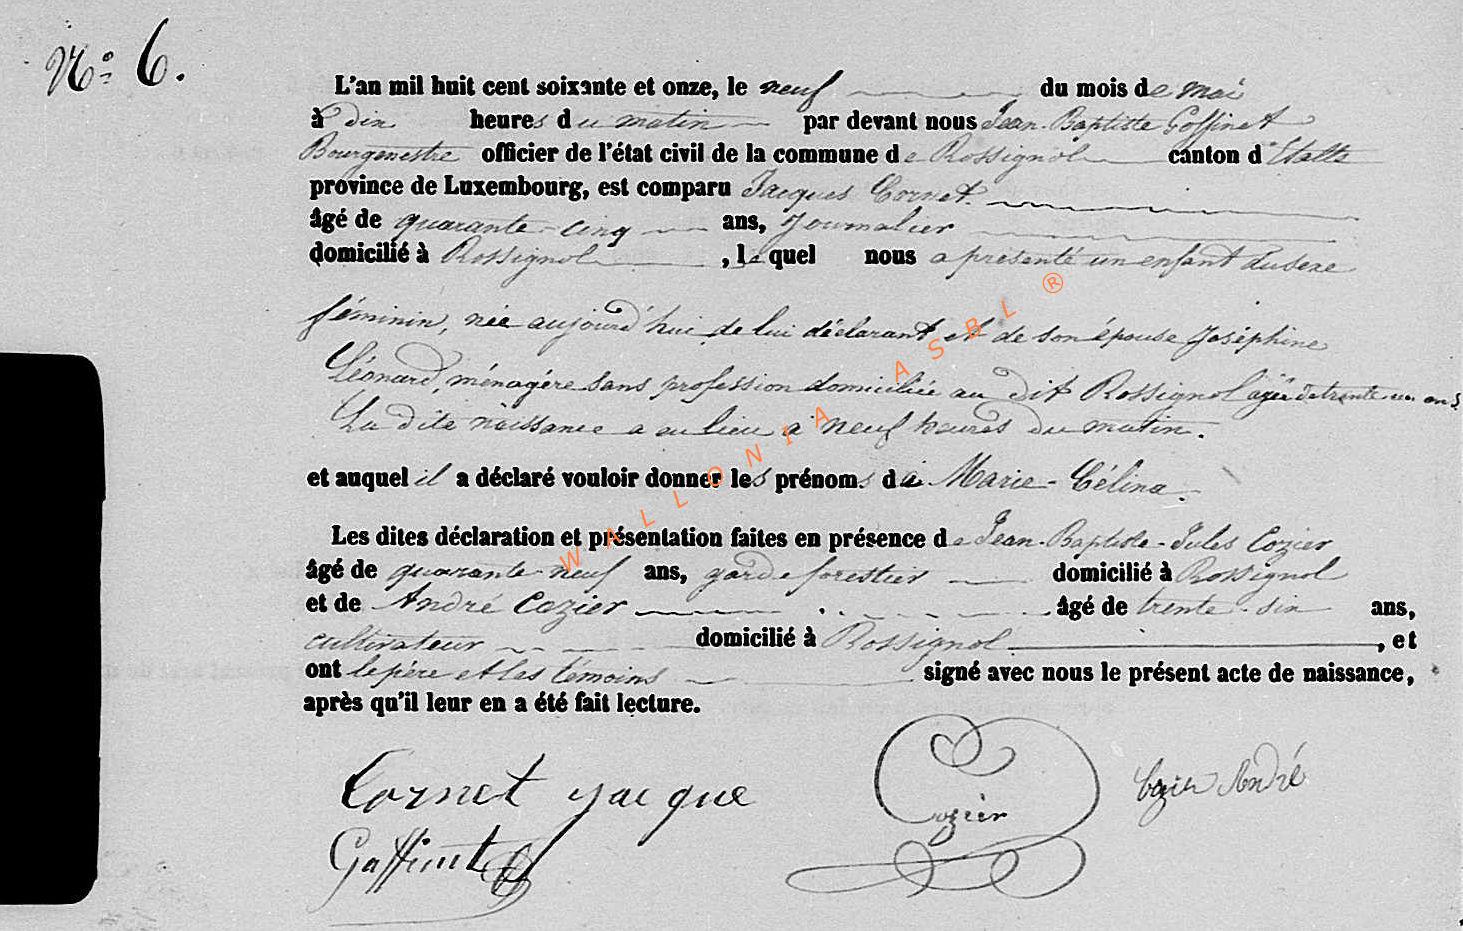 N° 6.
L'an mil huit cent soixante et onze, le neuf du mois de mai
à dix heures du matin par devant nous Jean-Baptiste Goffinet
Bourgmestre officier de l'état civil de la commune de Rossignol canton d'Etalle
province de Luxembourg, est comparu Jacques Cornet.
âgé de quarante-cinq ans, Journalier
domicilié à Rossignol, lequel nous a présenté un enfant du sexe
féminin, née aujourd'hui de lui déclarant et de son épouse Joséphine
Léonard, ménagère sans profession domiciliée au dit Rossignol âgée de trente un ans
La dite naissance a eu lieu à neuf heures du matin.
et auquel il a déclaré vouloir donner les prénoms de Marie-Célina.
Les dites déclaration et présentation faites en présence de Jean-Baptiste-Jules Cozier
âgé de quarante-neuf ans, garde forestier domicilié à Rossignol
et de André Cozier âgé de trente-six ans,
cultivateur domicilié à Rossignol, et
ont le père et les témoins signé avec nous le présent acte de naissance,
après qu'il leur en a été fait lecture.
Cornet jacque
Cozier
Cozier André
Goffinet
WALLONIA ASBL ®